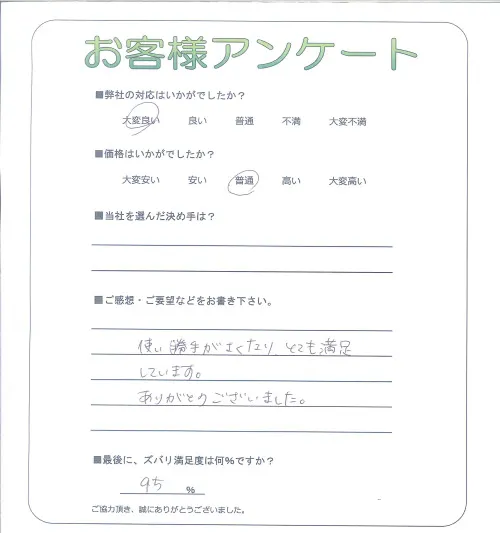 お客様アンケート
■弊社の対応はいかがでしたか？
大変良い 良い 普通 不満 大変不満
■価格はいかがでしたか？
大変安い 安い 普通 高い 大変高い
■当社を選んだ決め手は？
■ご感想・ご要望などをお書き下さい。
使い勝手がよくなり、とても満足
しています。
ありがとうございました。
■最後に、ズバリ満足度は何%ですか？
95 %
ご協力頂き、誠にありがとうございました。